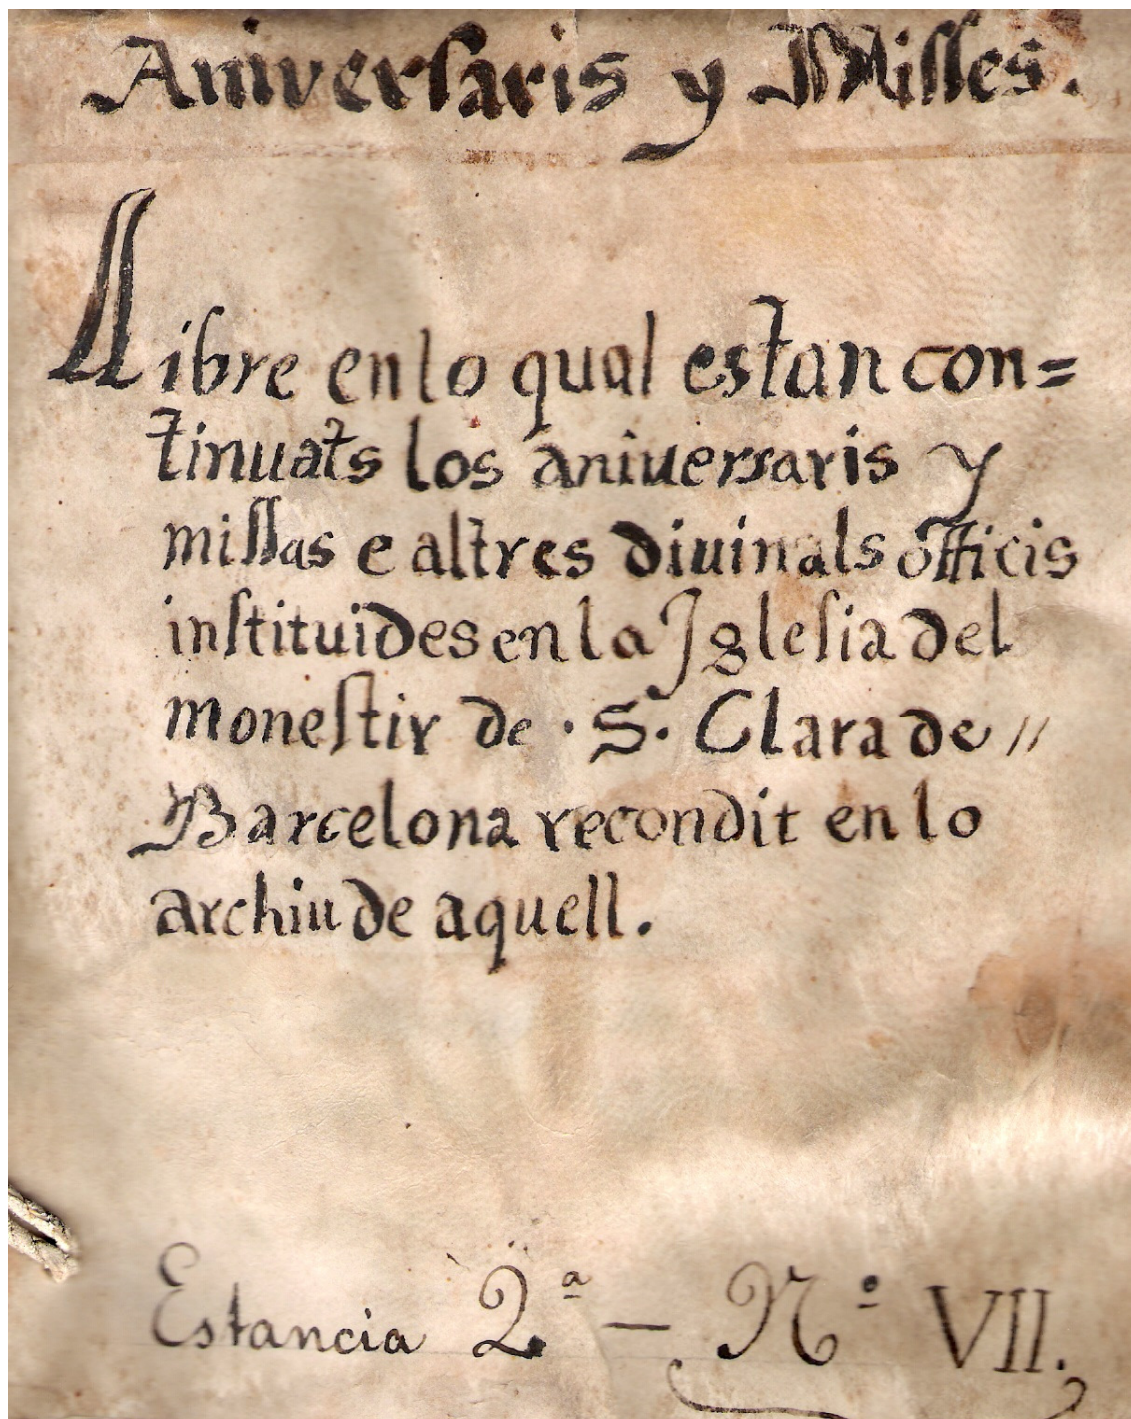 Aniversaris y Misses.
Llibre en lo qual estan con=
tinuats los aniuersaris y
missas e altres diuinals officis
instituides en la Iglesia del
monestir de · S · Clara de //
Barcelona recondit en lo
archiu de aquell.
Estancia 2ª — Nº VII.